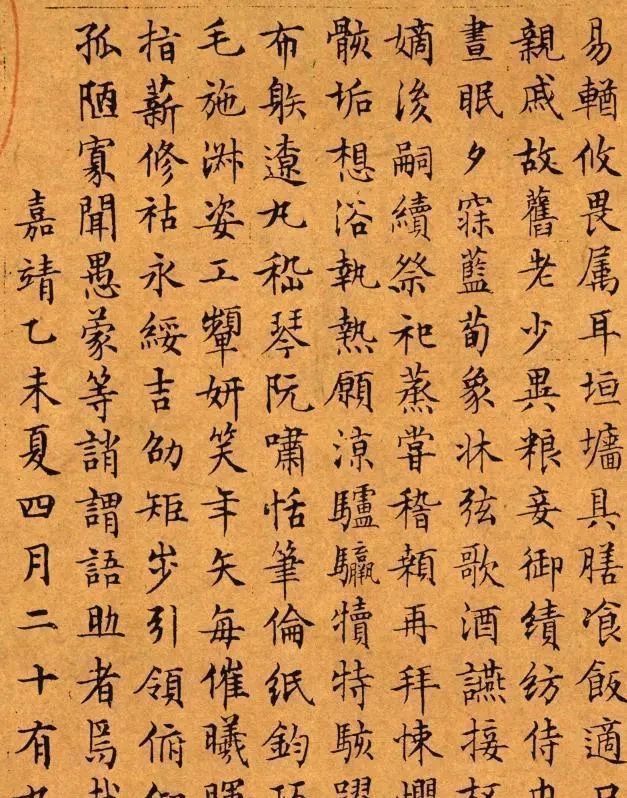 易輶攸畏属耳垣墻具膳飡飯適
親戚故舊老少異粮妾御績紡侍
晝眠夕寐藍荀象牀弦歌酒讌接
嫡後嗣續祭祀蒸嘗稽顙再拜悚懼
骸垢想浴執熱願涼驢驘犢特駭躍
布射遼丸嵇琴阮嘯恬筆倫紙鈞
毛施淑姿工顰妍笑年矢每催曦暉
指薪修祜永綏吉劭矩步引領俯
孤陋寡聞愚蒙等誚謂語助者焉哉
嘉靖乙未夏四月二十有